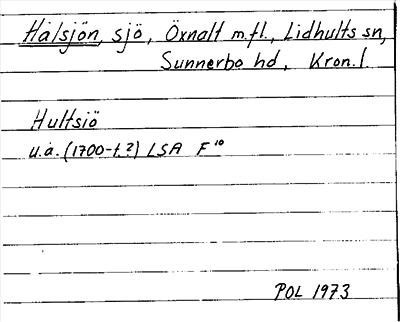 Hälsjön, sjö, Öxnalt m.fl., Lidhults sn,
Sunnerbo hd, Kron.l.
Hultsiö
u.å. (1700-t.?) LSA F¹⁰
POL 1973